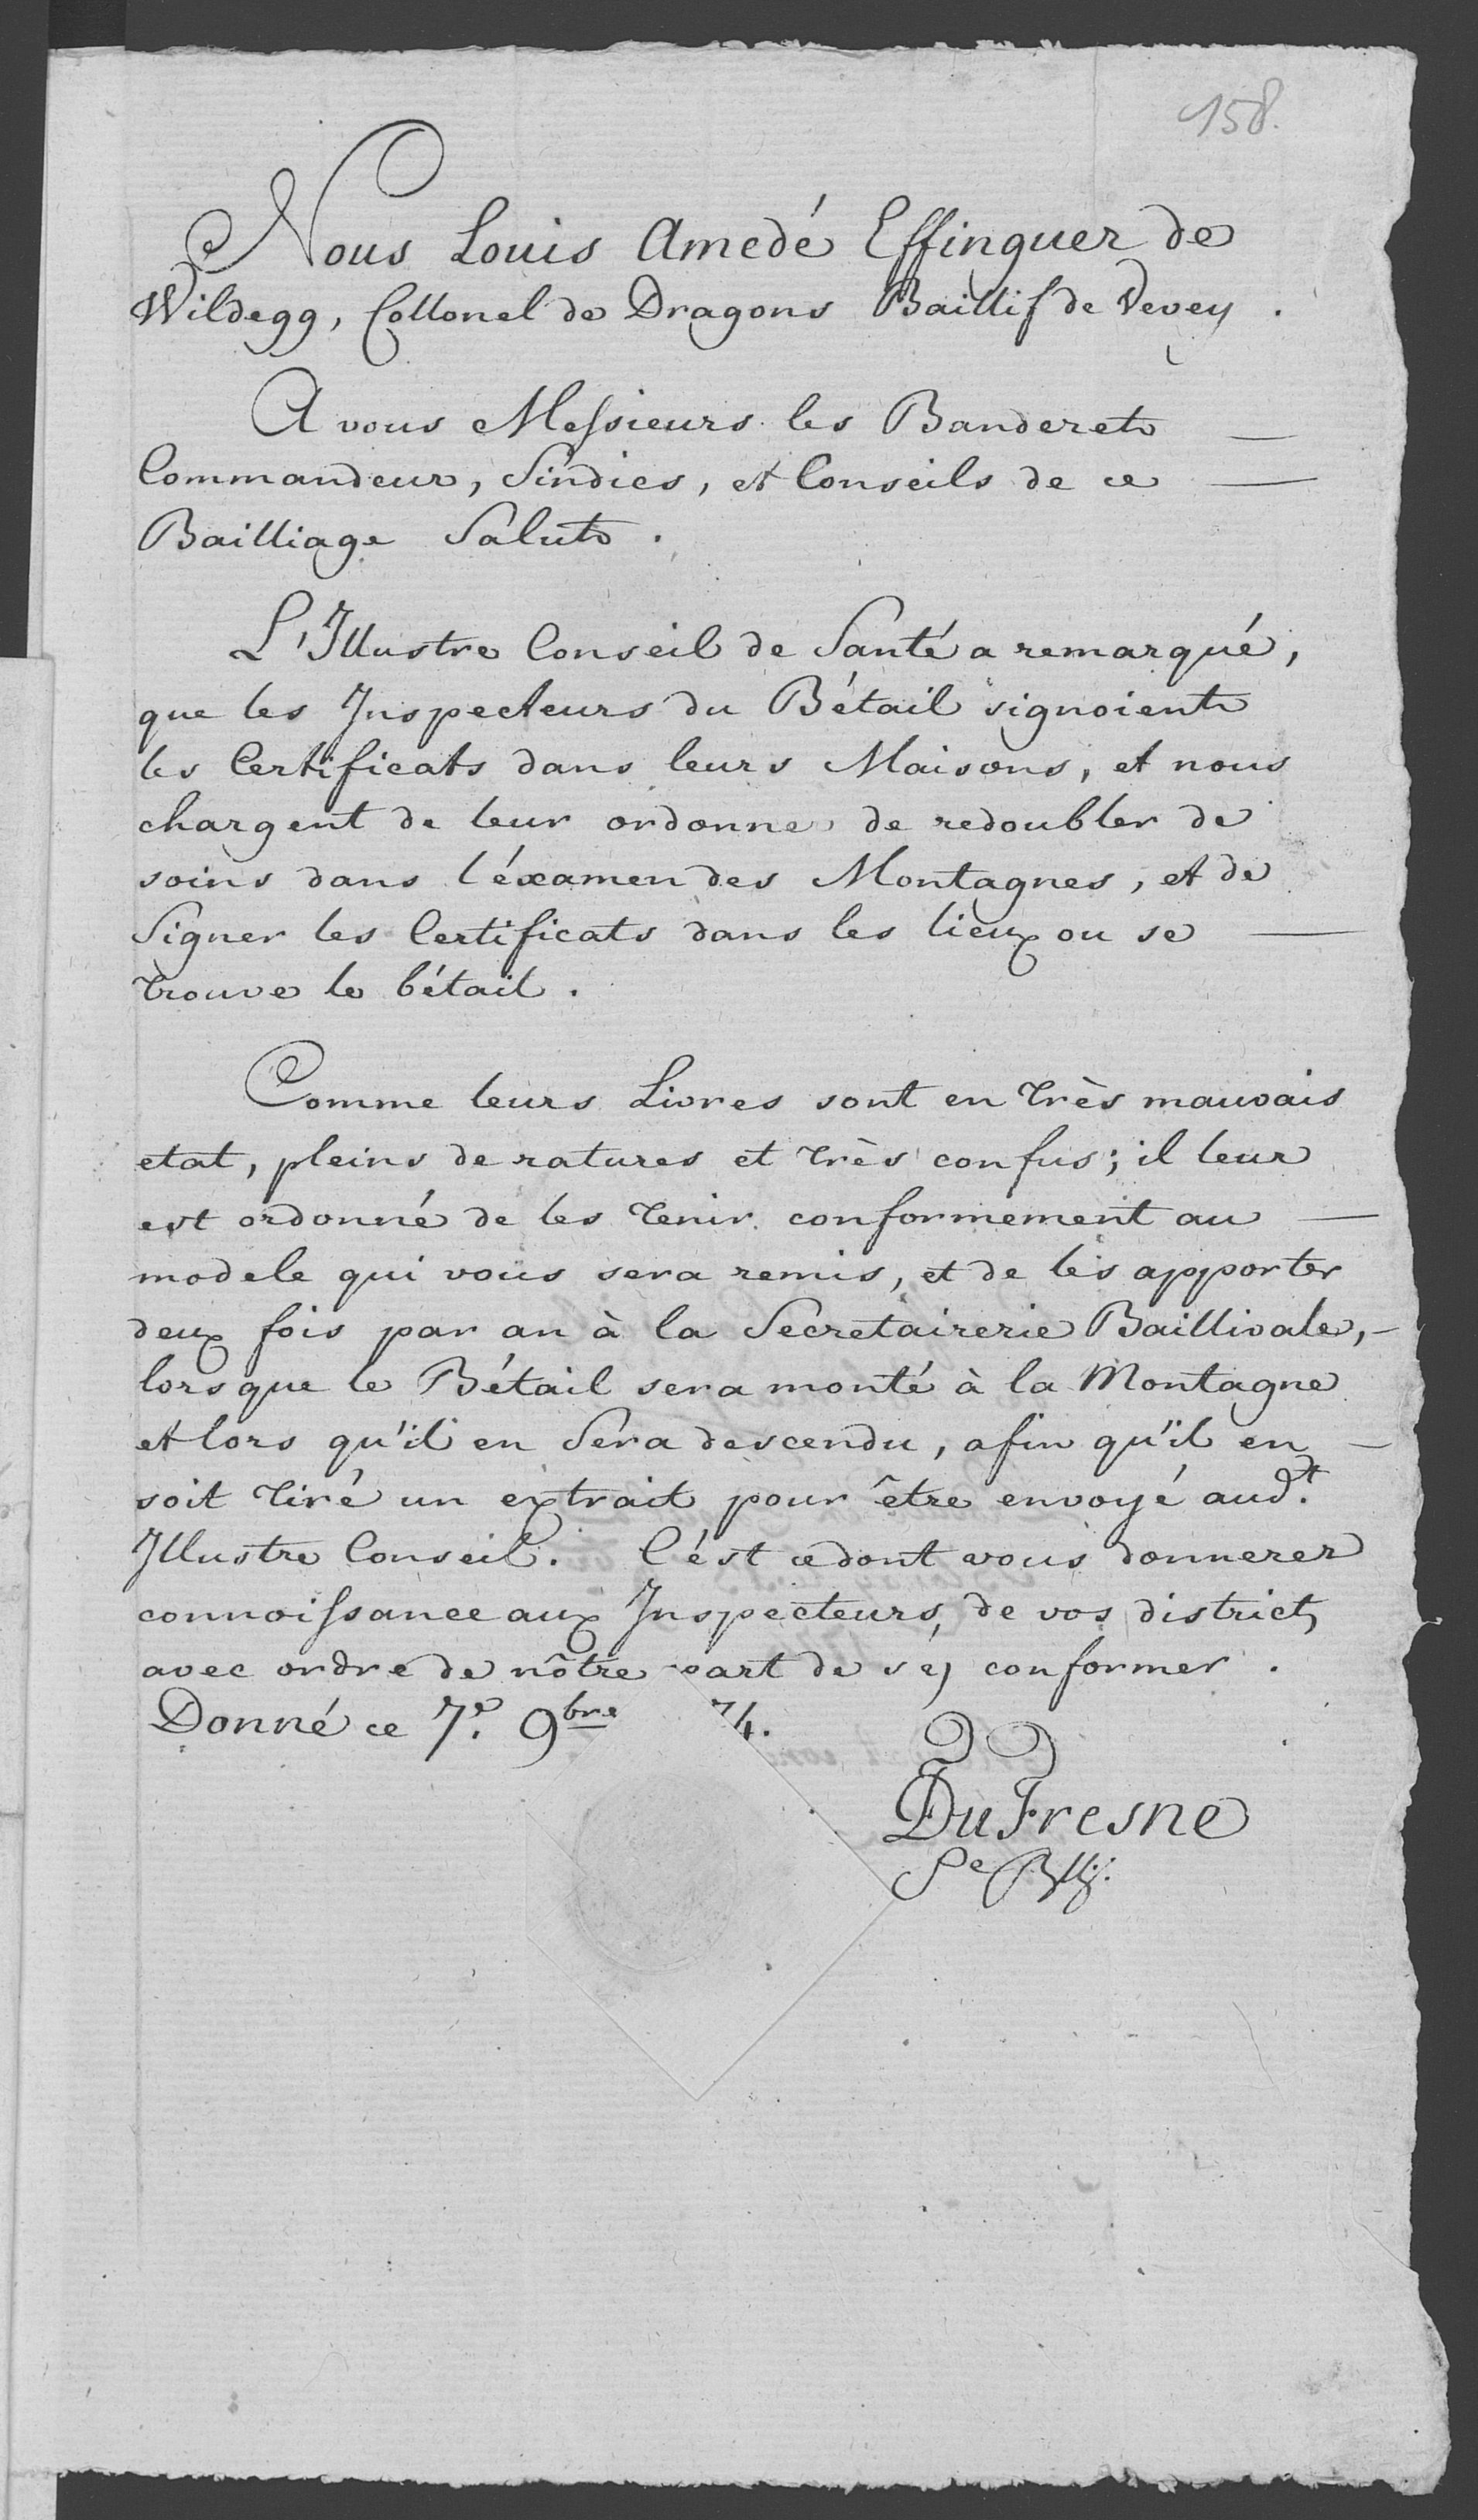 158.
Nous Louis Amedé Effinguer de
Wildegg, Collonel de Dragons Baillif de Vevey.
A vous Messieurs les Banderets
Commandeur, Sindics, et Conseils de ce
Bailliage Saluts.
L'Illustre Conseil de Santé a remarqué,
que les Inspecteurs du Bétail signoient
les Certificats dans leurs Maisons, et nous
chargent de leur ordonner de redoubler de
soins dans l'éxamen des Montagnes, et de
Signer les Certificats dans les lieux ou se
trouve le bétail.
Comme leurs Livres sont en très mauvais
etat, pleins de ratures et très confus; il leur
est ordonné de les tenir conformement au
modele qui vous sera remis, et de les apporter
deux fois par an à la Secretairerie Baillivale,
lorsque le Bétail sera monté à la Montagne
et lors qu'il en Sera descendu, afin qu'il en
soit tiré un extrait pour être envoyé aud.t
Illustre Conseil. C'ést ce dont vous donnerer
connoissance aux Inspecteurs, de vos districts
avec ordre de nôtre part de s'ey conformer.
Donné ce 7.e 9bre 74.
DuFresne